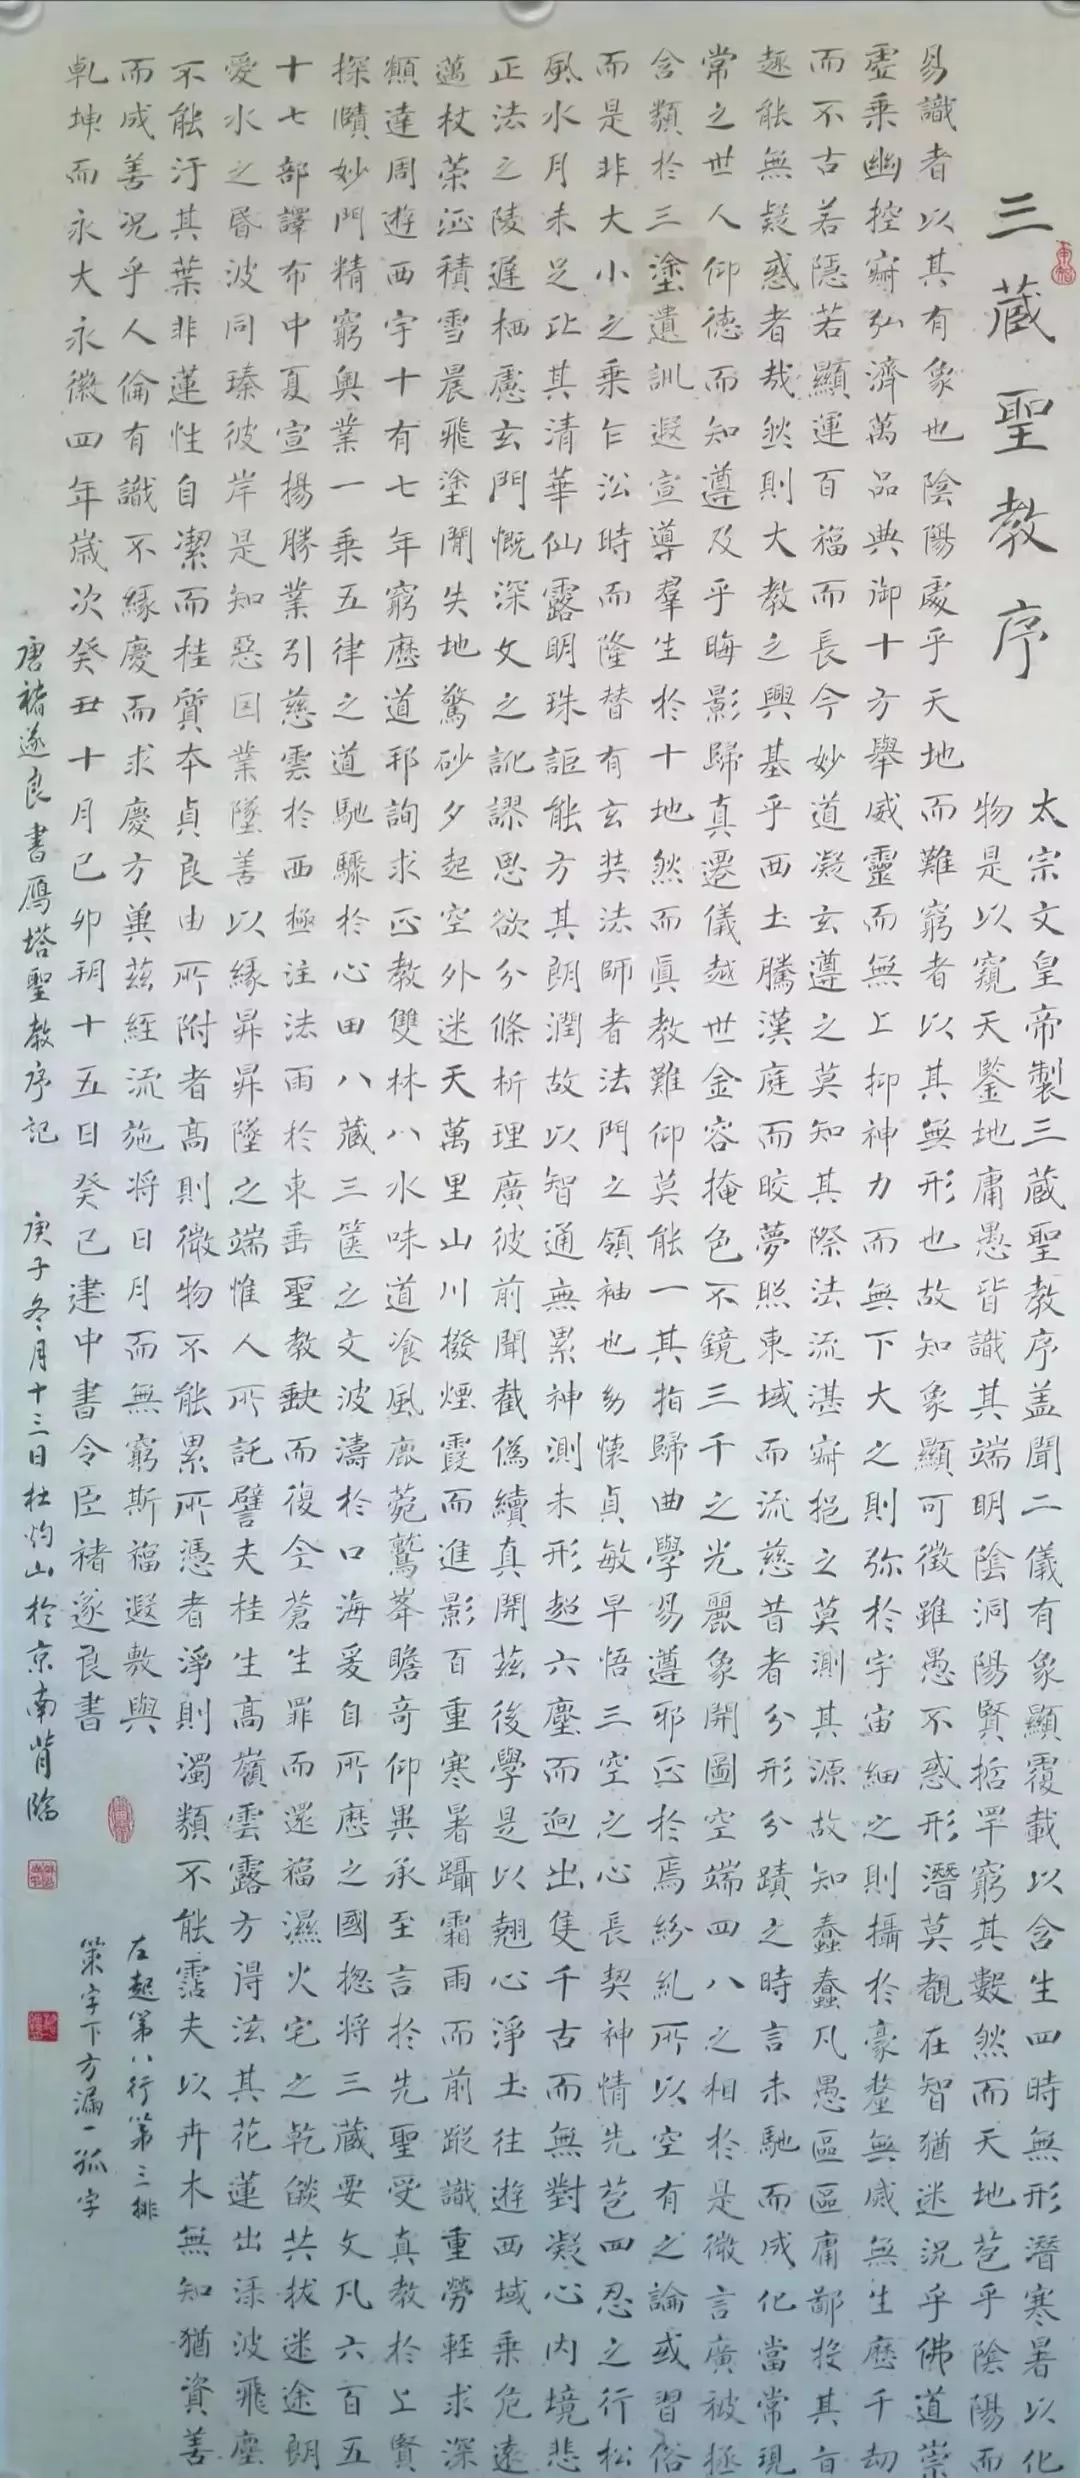 三藏聖教序
太宗文皇帝製三藏聖教序盖聞二儀有象顯覆載以含生四時無形潛寒暑以化
物是以窺天鑒地庸愚皆識其端明陰洞陽賢括罕窮其數然而天地苞乎陰陽而
易識者以其有象也陰陽處乎天地而難窮者以其無形也故知象顯可徵雖愚不惑形潛莫覩在智猶迷況乎佛道崇
虛乘幽控寂弘濟萬品典御十方舉威靈而無上抑神力而無下大之則弥於宇宙細之則攝於豪釐無滅無生歷千劫
而不古若隱若顯運百福而長今妙道凝玄遵之莫知其際法流湛寂挹之莫測其源故知蠢蠢凡愚區區庸鄙投其旨
趣能無疑惑者哉然則大教之興基乎西土騰漢庭而皎夢照東域而流慈昔者分形分蹟之時言未馳而成化當常現
常之世人仰德而知遵及乎晦影歸真遷儀越世金容掩色不鏡三千之光麗象開圖空端四八之相於是微言廣被拯
含類於三塗遺訓遐宣導羣生於十地然而真教難仰莫能一其指歸曲學易遵邪正於焉紛糺所以空有之論或習俗
而是非大小之乘乍沿時而隆替有玄奘法師者法門之領袖也幼懷貞敏早悟三空之心長契神情先苞四忍之行松
風水月未足比其清華仙露明珠詎能方其朗潤故以智通無累神測未形超六塵而迥出隻千古而無對凝心內境悲
正法之陵遲栖慮玄門慨深文之訛謬思欲分條析理廣彼前聞截偽續真開茲後學是以翹心淨土往遊西域乘危遠
邁杖策征積雪晨飛塗閒失地驚砂夕起空外迷天萬里山川撥煙霞而進影百重寒暑躡霜雨而前蹤誠重勞輕求深
願達周遊西宇十有七年窮歷道邦詢求正教雙林八水味道飡風鹿菀鷲峯瞻奇仰異承至言於先聖受真教於上賢
探賾妙門精窮奧業一乘五律之道馳驟於心田八藏三篋之文波濤於口海爰自所歷之國揔將三藏要文凡六百五
十七部譯布中夏宣揚勝業引慈雲於西極注法雨於東垂聖教缺而復全蒼生罪而還福濕火宅之乾燄共拔迷途朗
愛水之昏波同臻彼岸是知惡因業墜善以緣昇昇墜之端惟人所託譬夫桂生高嶺雲露方得泫其花蓮出淥波飛塵
不能汙其葉非蓮性自潔而桂質本貞良由所附者高則微物不能累所憑者淨則濁類不能霑夫以卉木無知猶資善
而成善況乎人倫有識不緣慶而求慶方冀茲經流施將日月而無窮斯福遐敷與
乾坤而永大永徽四年歲次癸丑十月己卯朔十五日癸巳建中書令臣褚遂良書
唐褚遂良書雁塔聖教序記 庚子冬月十三日杜灼山於京南背臨
左起第八行第三排
策字下方漏一孤字